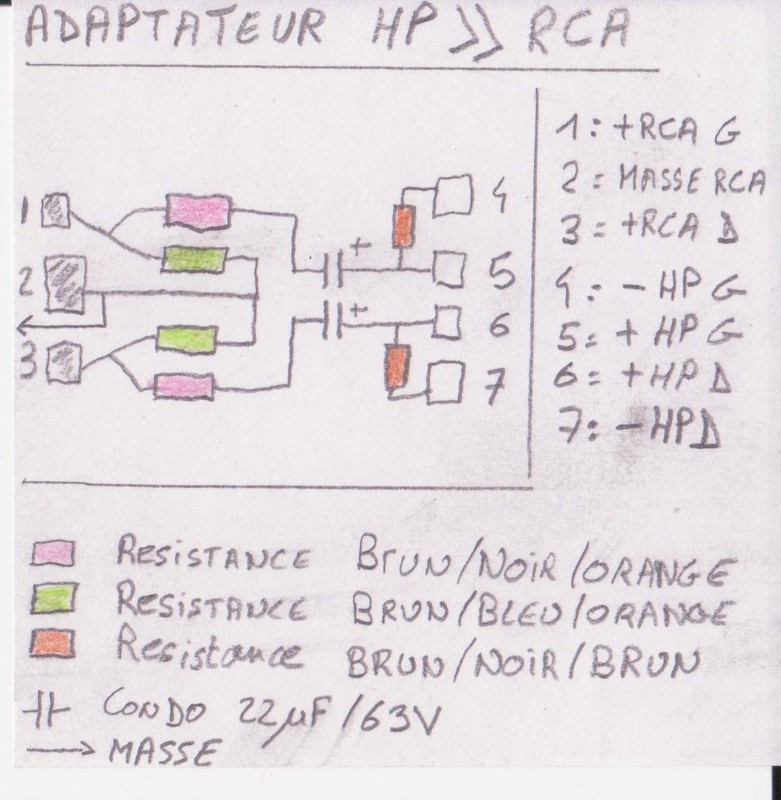 ADAPTATEUR HP >> RCA
1: +RCA G
2= MASSE RCA
3= +RCA D
4: - HP G
5= + HP G
6= +HP D
7: -HPD
1
2
3
+
+
4
5
6
7
RESISTANCE BRUN/NOIR/ORANGE
RESISTANCE BRUN/BLEU/ORANGE
Resistance BRUN/NOIR/BRUN
CONDO 22µF/63V
MASSE